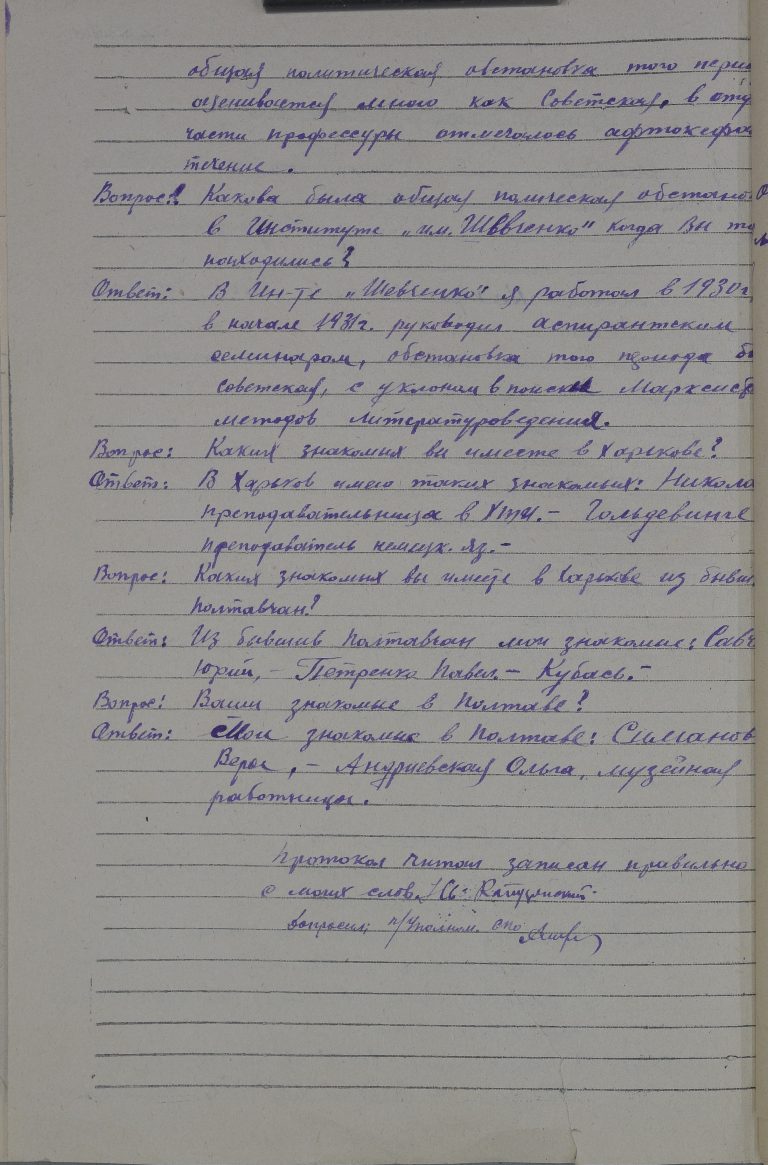 общая политическая обстановка того пери
оценивается мною как Советская, в отд
части профессуры отмечалось афтокефа
течение.
Вопрос: Какова была общая полическая обстано
в Институте „им. Шввченко" когда Вы
находились?
Ответ: В Ин-те „Шевченко" я работал в 1930г
в начале 1931г. руководил аспирантским
семинаром, обстановка того периода б
советская, с уклоном в поиски Марксист
методов литературоведения.
Вопрос: Каких знакомых вы имеете в Харькове?
Ответ: В Харьков имею таких знакомых: Никола
преподавательница в - Гольдевинге
преподаватель немецк. яз. -
Вопрос: Каких знакомых вы имеете в Харькове из бывш.
полтавчан?
Ответ: Из бывшив полтавчан мои знакомые: Савч
Юрий, - Петренко Павел. - Кубась. -
Вопрос: Ваши знакомые в Полтаве?
Ответ: Мои знакомые в Полтаве:
Вера, - Андриевская Ольга, музейная
работница.
Протокол читал записан правильно
с моих слов
допросил: п/Уполном. СПО